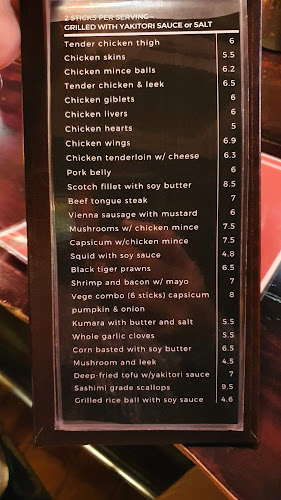 2 STICKS PER SERVING
GRILLED WITH YAKITORI SAUCE or SALT
Tender chicken thigh 6
Chicken skins 5.5
Chicken mince balls 6.2
Tender chicken & leek 6.5
Chicken giblets 6
Chicken livers 6
Chicken hearts 5
Chicken wings 6.9
Chicken tenderloin w/ cheese 6.3
Pork belly 6
Scotch fillet with soy butter 8.5
Beef tongue steak 7
Vienna sausage with mustard 6
Mushrooms w/ chicken mince 7.5
Capsicum w/chicken mince 7.5
Squid with soy sauce 4.8
Black tiger prawns 6.5
Shrimp and bacon w/ mayo 7
Vege combo (6 sticks) capsicum 8
pumpkin & onion
Kumara with butter and salt 5.5
Whole garlic cloves 5.5
Corn basted with soy butter 6.5
Mushroom and leek 4.5
Deep-fried tofu w/yakitori sauce 7
Sashimi grade scallops 9.5
Grilled rice ball with soy sauce 4.6